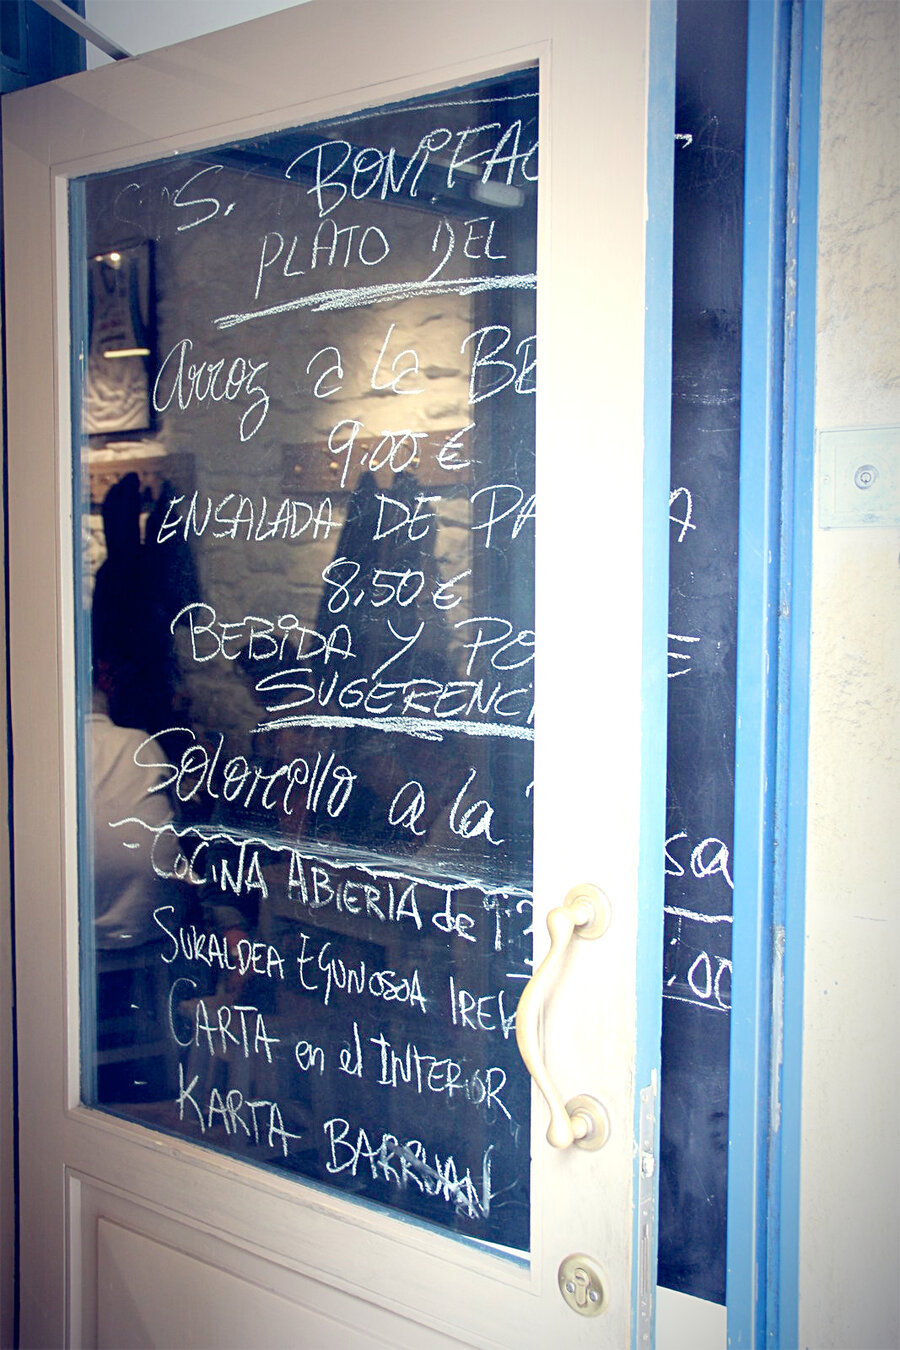 S. BONIFAC
PLATO DEL
Arroz a la BE
9,00 €
ENSALADA DE PA A
8,50 €
BEBIDA Y PO E
SUGERENCI
Solomillo a la sa
COCINA ABIERTA de
:00
SUKALDEA EGUNOSOA IREK
CARTA en el INTERIOR
KARTA BARRUAN